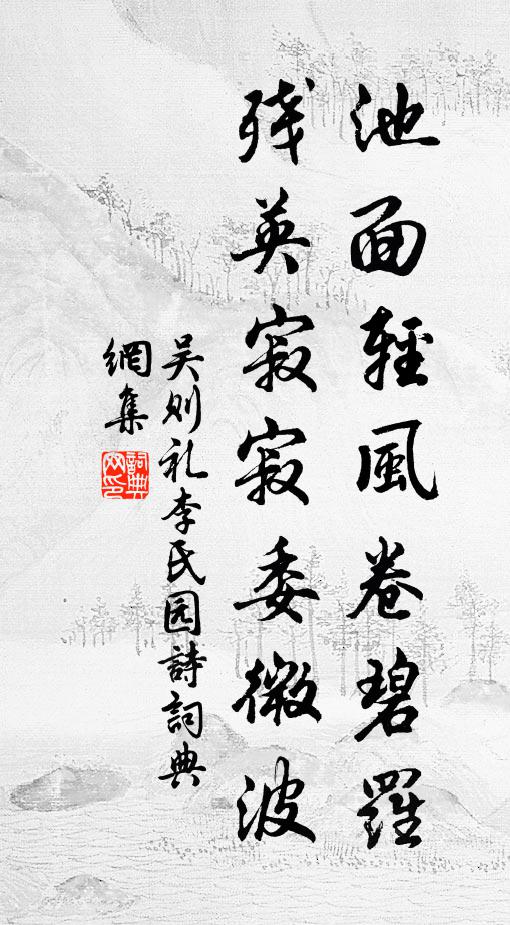 池面輕風卷碧羅
殘英寂寂委微波
吴则礼李氏园詩詞典
網集
詞典网印